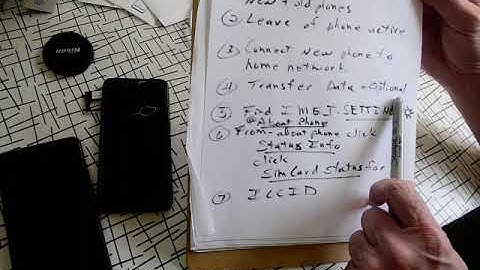 New + old phones
② Leave of phone active
③ Connect New phone to
home network.
④ Transfer Data - Optional
⑤ Find I M E I. SETTING
@ About Phone
⑥ From - about phone click
Status Info
click
Sim Card Status for
⑦ I C C I D
Nikon